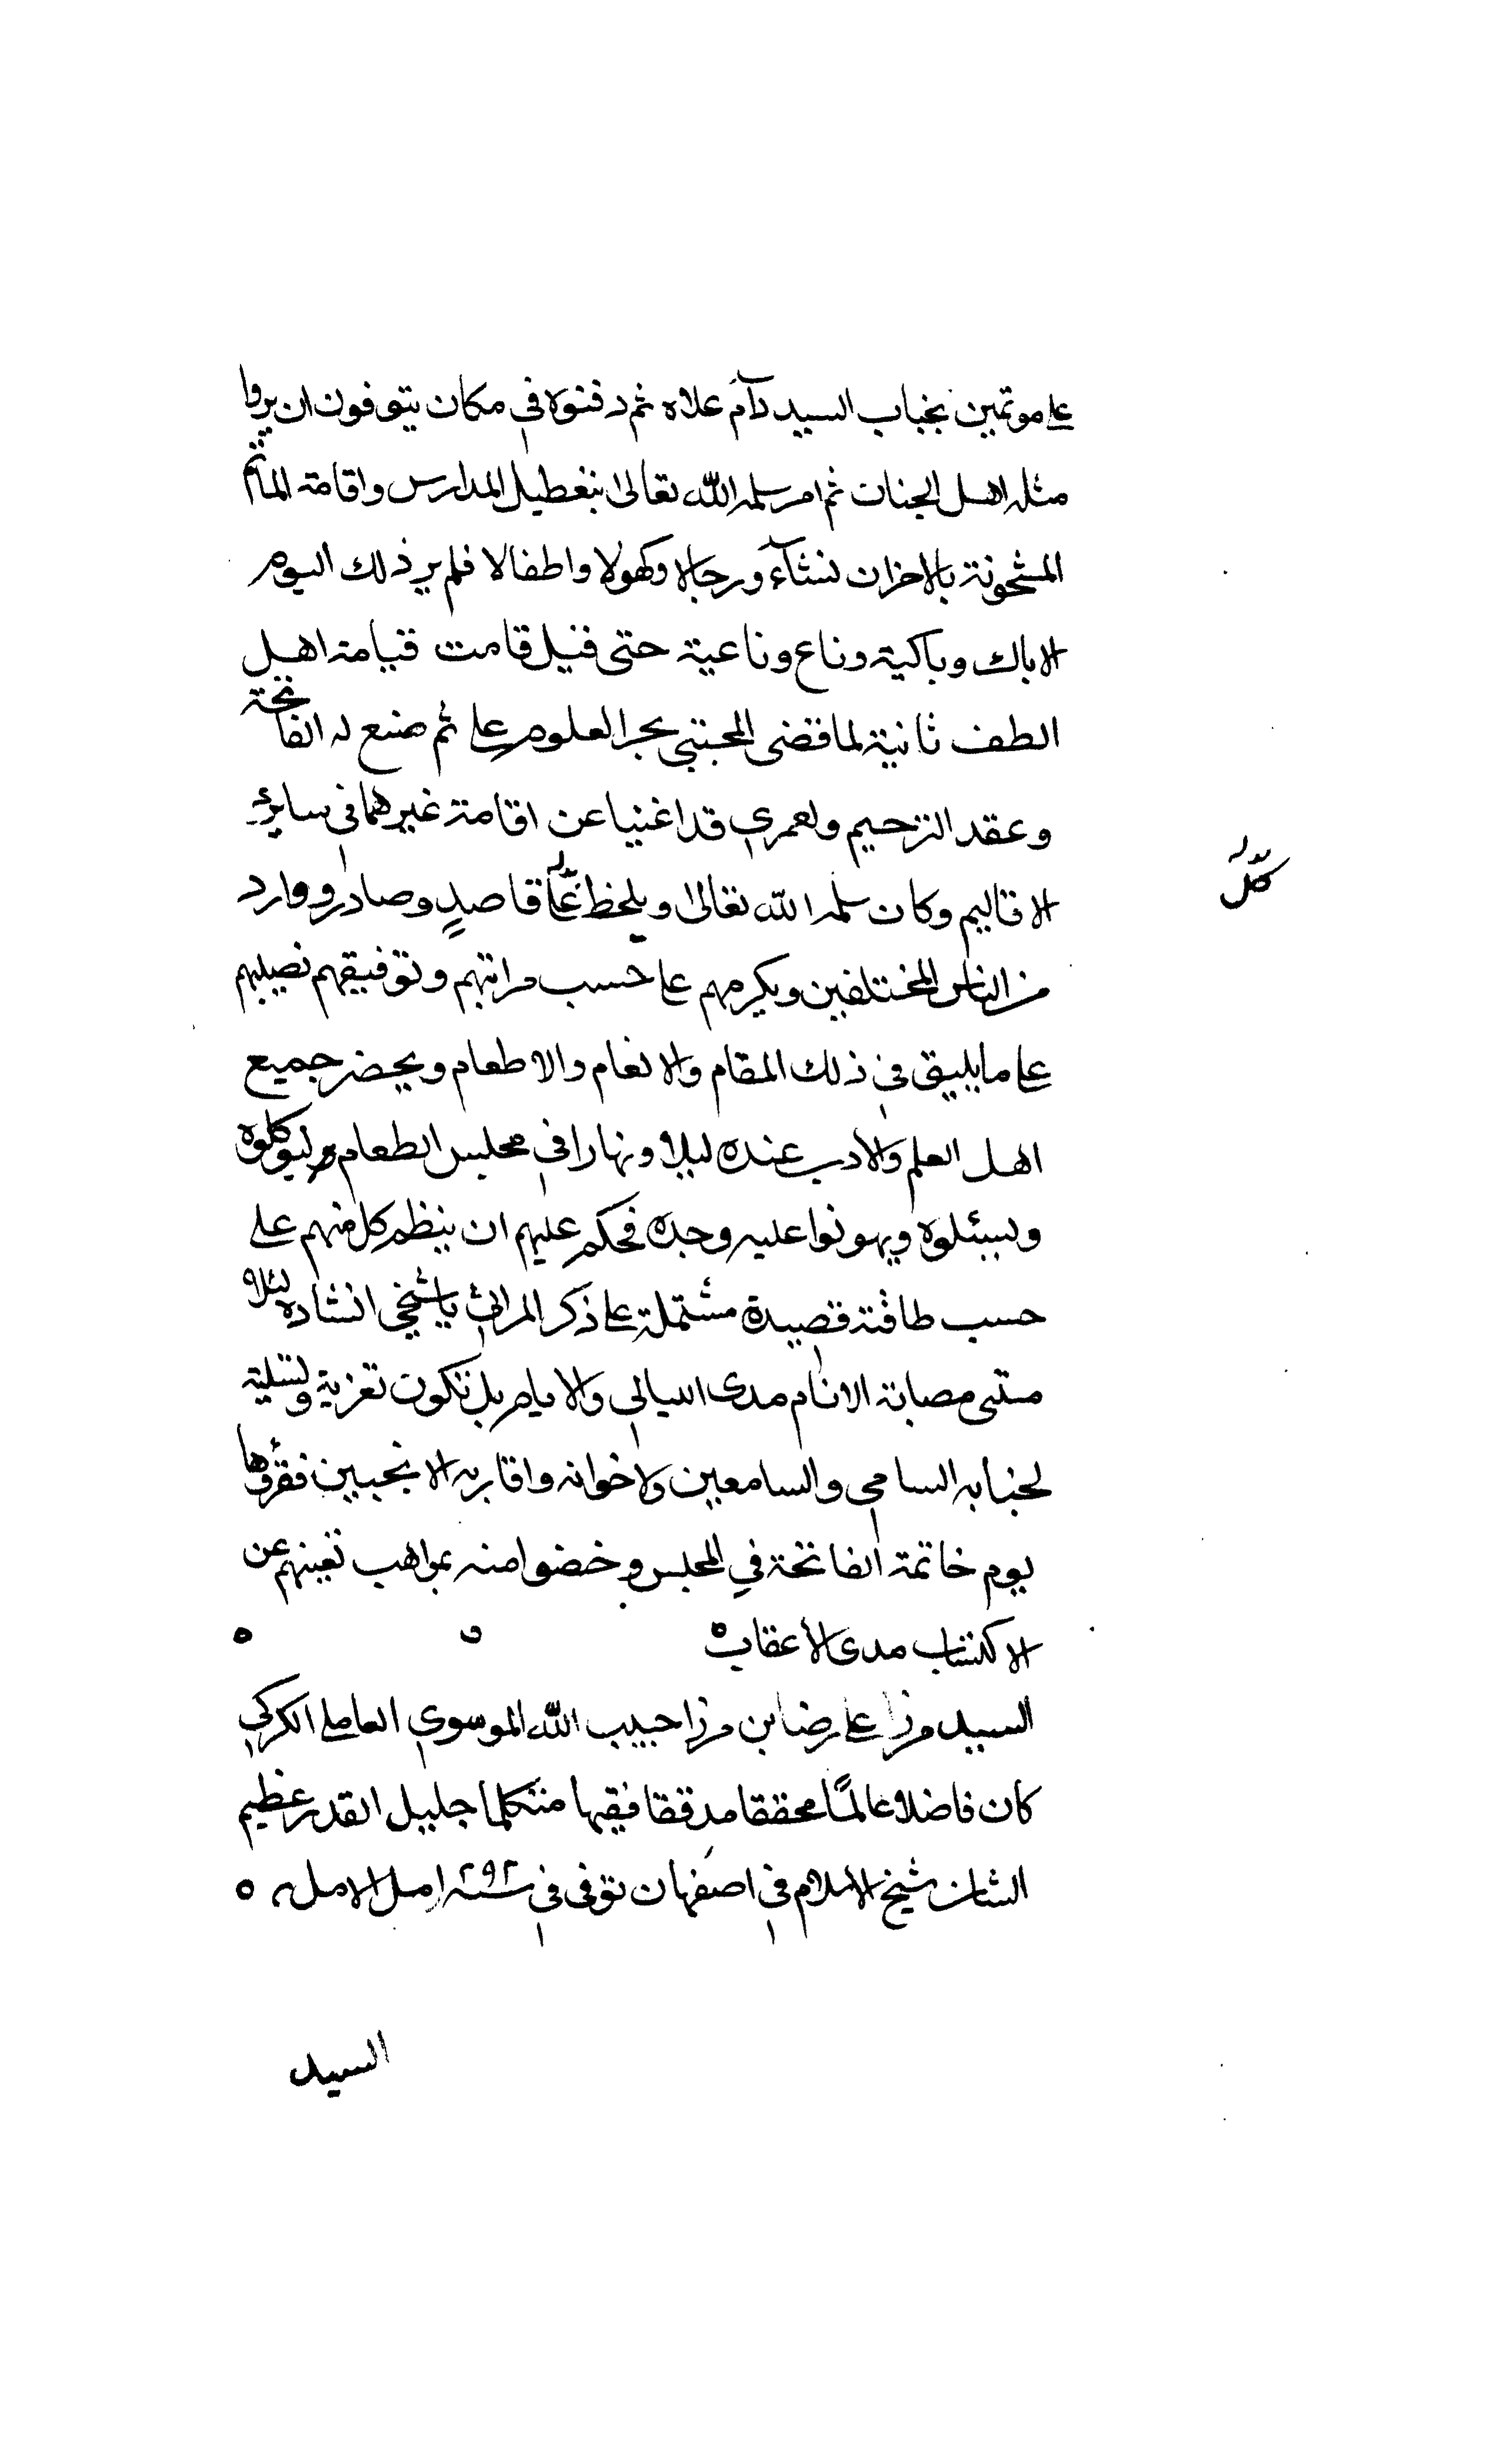 على موتمين بجناب السيد دآم علاه ثم دفنوه في مكان يتوفون ان يروا
مثله اهل الجنان ثم امر سلمه الله تعالى بتعطيل المدارس واقامة المأتم
المشحونة بالاحزان نسٓاء ورجالا وكهولا واطفالا فلم ير ذلك اليوم
الا باك وباكية وناع وناعية حتى قيل قامت قيامة اهل
الطف ثانية لما قضى المجتبى بحر العلوم على ثم صنع له الفاتحة
وعقد الترحيم ولعمري قد اغنيا عن اقامة غيرهما في ساير
الاقاليم وكان سلمه الله تعالى ويلحظ قاصدٍ وصادر ووارد
كلّ
من الناس المختلفين ويكرمهم على حسب مراتبهم وتوفيقهم نصيبهم
على ما يليق في ذلك المقام والانعام والاطعام ويحضر جميع
اهل العلم والادب عنده ليلا ونهارا في مجلس الطعام
ويسئلوه ويهونوا عليه وجده فحكم عليهم ان ينظم كل منهم على
حسب طاقته قصيدة مشتملة على ذكر المراثي انشاده لئلا
مصابة الانام مدى الليالي والايام بل تكون تعزية وتسلية
لجنابه السامي والسامعين ولاخوانه واقاربه الانجبين فقرؤها
يوم خاتمة الفاتحة في المجلس وخضوا منه بمواهب تغنيهم عن
الاكتتاب مدى الأعقاب ه
السيد مرزا على رضا بن مرزا حبيب الله الموسوي العاملي الكركي
كان فاضلا عالمًا محققا مدققا فقيها متكلما جليل القدر عظيم
الشان شيخ الاسلام في اصفهان توفى في سنة امل الامل ه
السيد